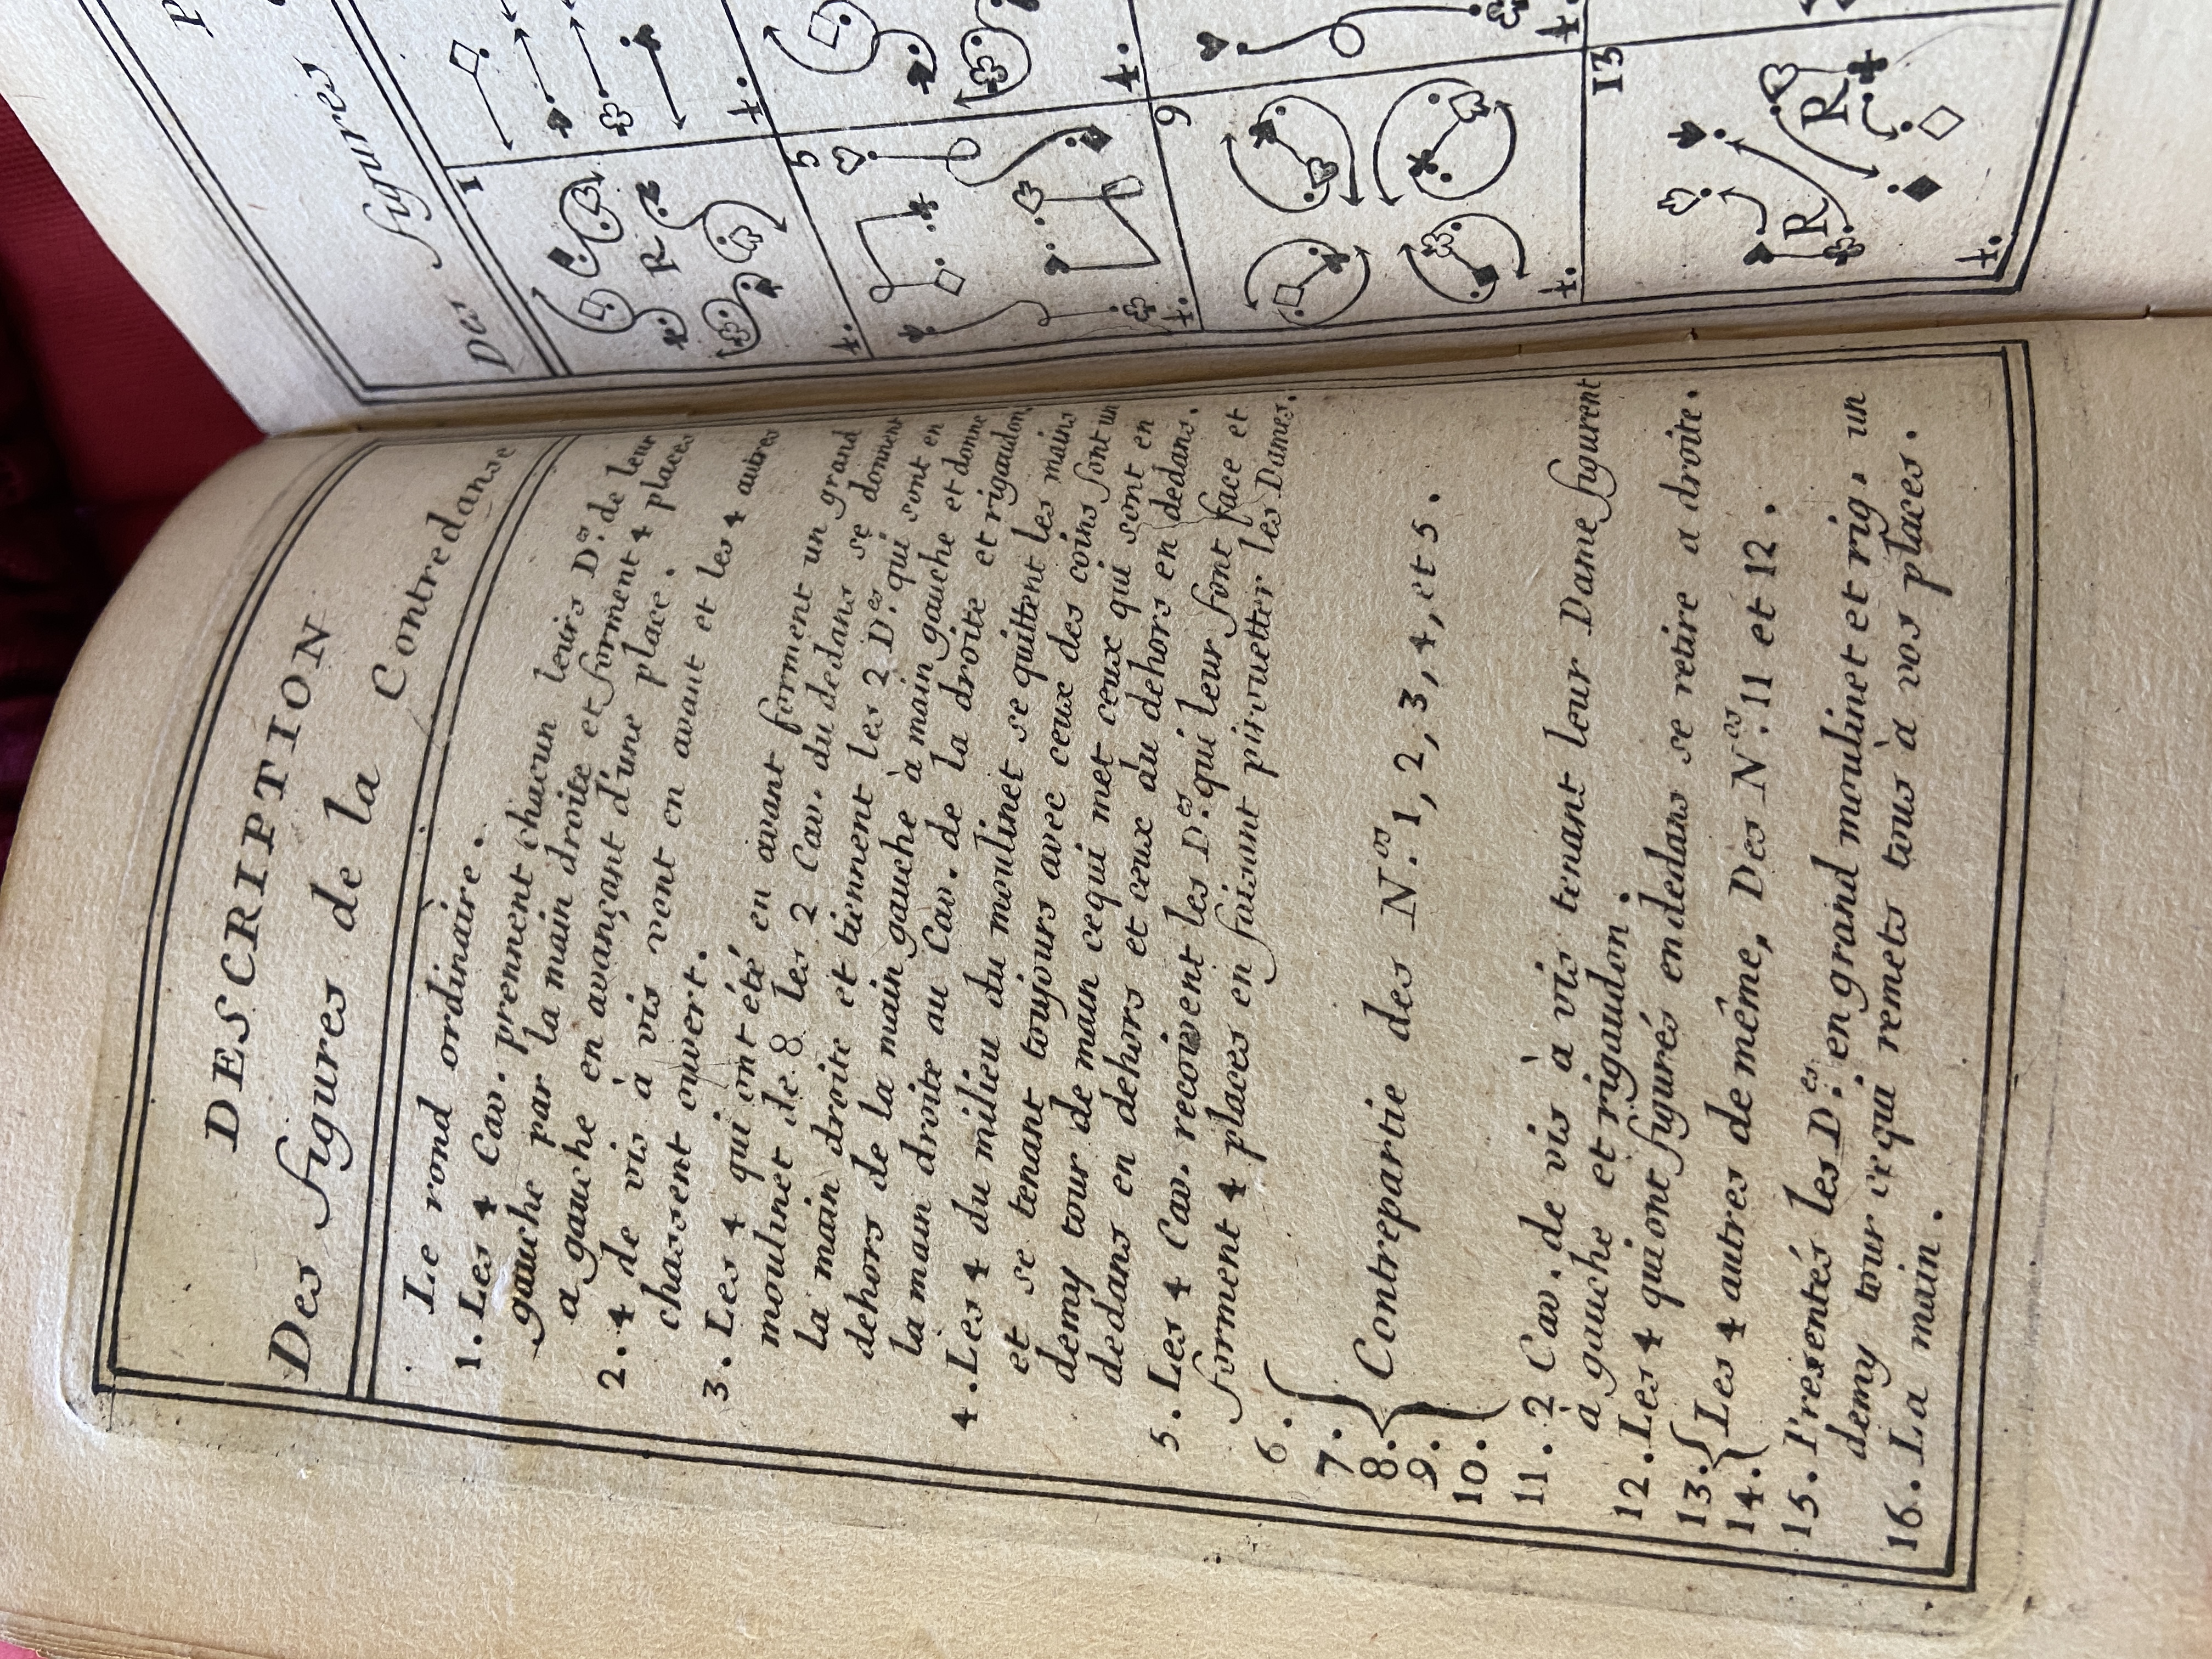 DESCRIPTION
Des figures de la Contredanse
Le rond ordinaire.
1. Les 4 Cav. prennent chacun leurs D.es de leur
gauche par la main droite et forment 4 places
a gauche en avançant d'une place.
2. 4 de vis à vis vont en avant et les 4 autres
chassent ouvert.
3. Les 4 qui ont été en avant forment un grand
moulinet de 8 les 2 Cav. du dedans se donnent
la main droite et tiennent les 2 D.es qui sont en
dehors de la main gauche à main gauche et donne
la main droite au Cav. de la droite et rigaudon.
4. Les 4 du milieu du moulinet se quittent les mains
et se tenant toujours avec ceux des coins font un
demy tour de main cequi met ceux qui sont en
dedans en dehors et ceux du dehors en dedans.
5. Les 4 Cav. recoivent les D.es qui leur font face et
forment 4 places en faisant pirouetter les Dames.
6.
7.
8. Contrepartie des N.os 1, 2, 3, 4, et 5.
9.
10.
11. 2 Cav. de vis à vis tenant leur Dame figurent
à gauche et rigaudon.
12. Les 4 qui ont figurés en dedans se retire a droite.
13.
14. Les 4 autres de même, Des N.os 11 et 12.
15. Presentés les D.es en grand moulinet et rig. un
demy tour cequi remets tous à vos places.
16. La main.
Des figures
1
4.
4.
5
4.
4.
9
4.
4.
13
4.
R
R
R